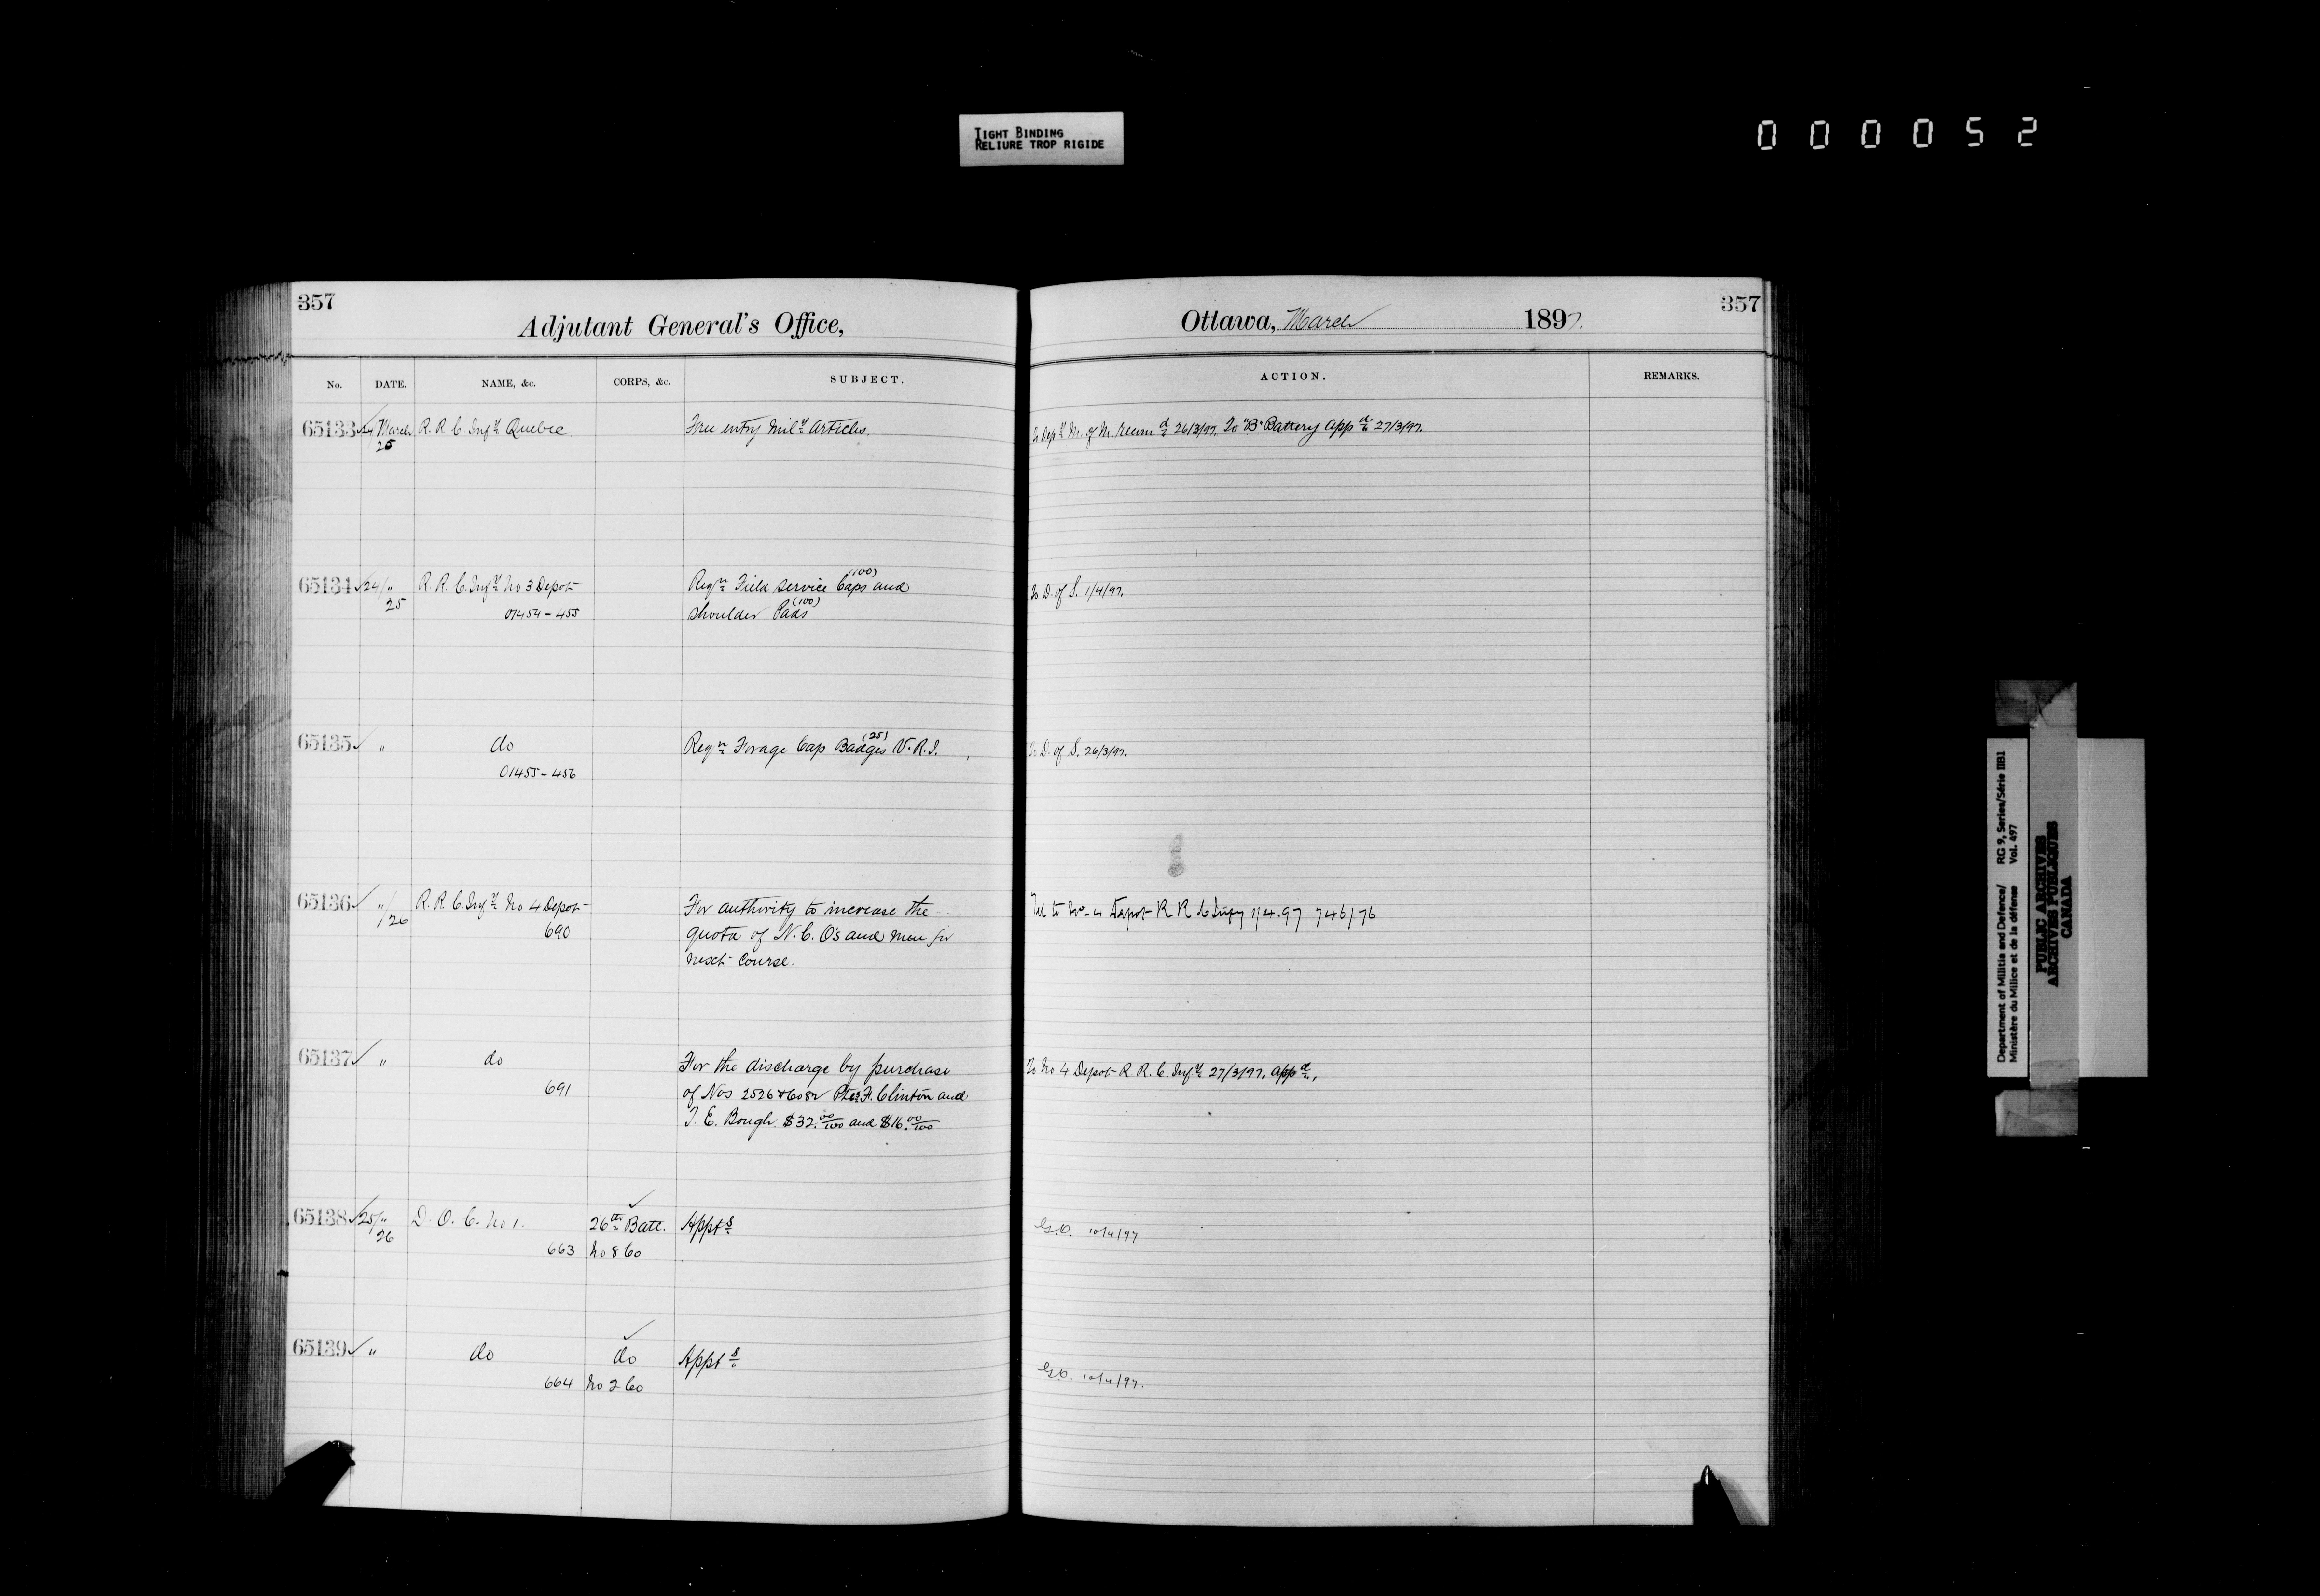 TIGHT BINDING
RELIURE TROP RIGIDE
000052
357
Adjutant General's Office,
No. DATE. NAME, &c. CORPS, &c. SUBJECT.
65133 24 March R. R. C. Infy Quebec Free entry Mily Articles.
25
65134 24/" R. R. C. Infy No 3 Depot Reqn Field Service Caps (100) and
25 01454-455 Shoulder Pads (100)
65135 " do Reqn Forage Cap Badges (25) V.R.I.
01455-456
65136 "/26 R. R. C. Infy No 4 Depot For authority to increase the
690 quota of N.C.O's and men for
next course.
65137 " do For the discharge by purchase
691 of Nos 2526 & 6082 Ptes F. Clinton and
T. E. Bough. $32.00/100 and $16.00/100
65138 25/" D. O. C. No 1. 26th Batt. Appts
26 663 No 8 Co
65139 " do do Appts
664 No 2 Co
357
Ottawa, March 1897.
ACTION. REMARKS.
To Dept M. of M. recomd 26/3/97. To "B" Battery appd 27/3/97.
To D. of S. 1/4/97.
To D. of S. 26/3/97.
Tel to No 4 Depot R R C Infy 1/4.97 746/76
To No 4 Depot R. R. C. Infy 27/3/97. appd.
G.O. 10/4/97
G.O. 10/4/97.
Department of Militia and Defence/ RG 9, Series/Série IIB1
Ministère du Milice et de la défense Vol. 497
PUBLIC ARCHIVES
ARCHIVES PUBLIQUES
CANADA